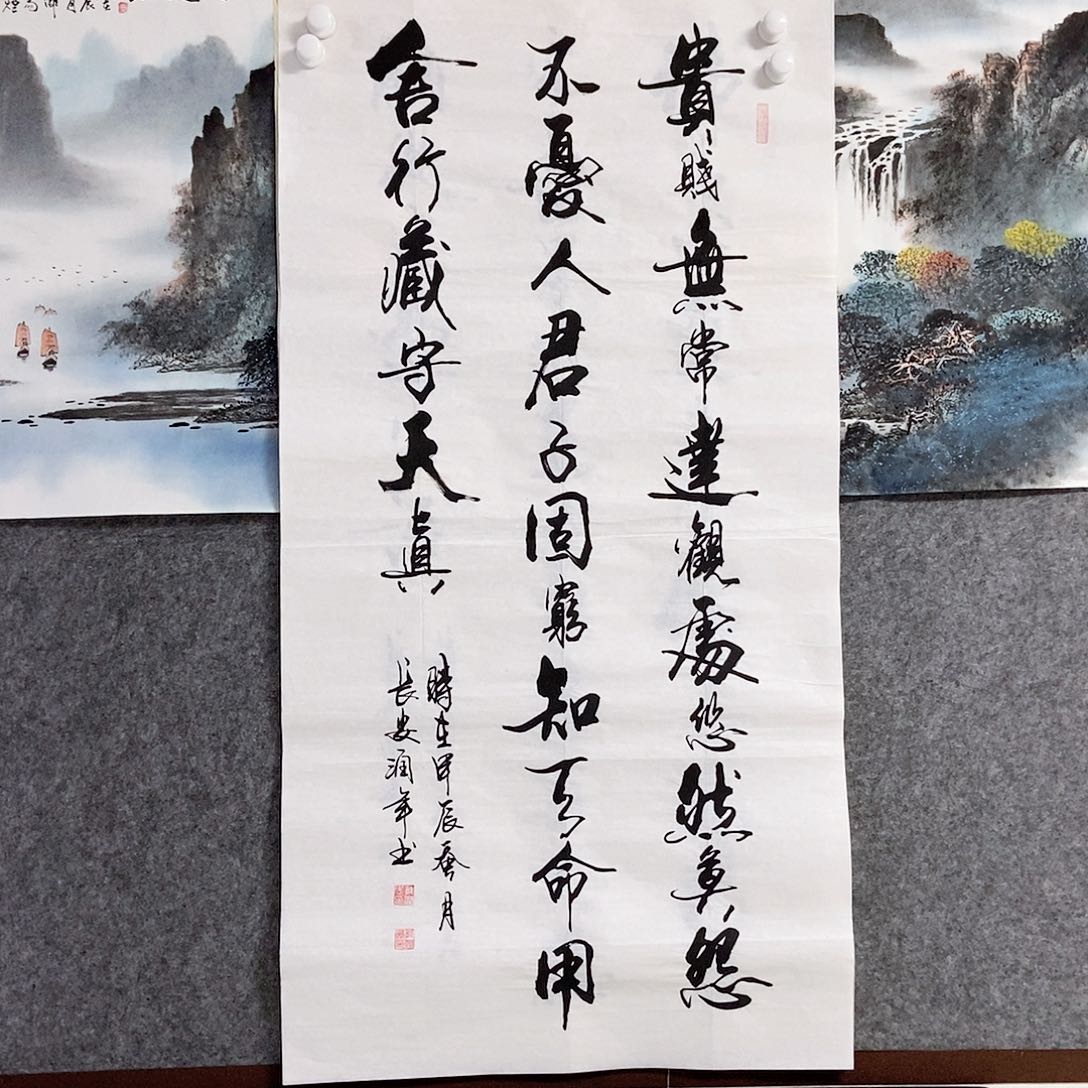 貴賤無常達觀處悠然莫怨
不憂人君子固窮知天命用
舍行藏守天真
時在甲辰春月
長安潤年书